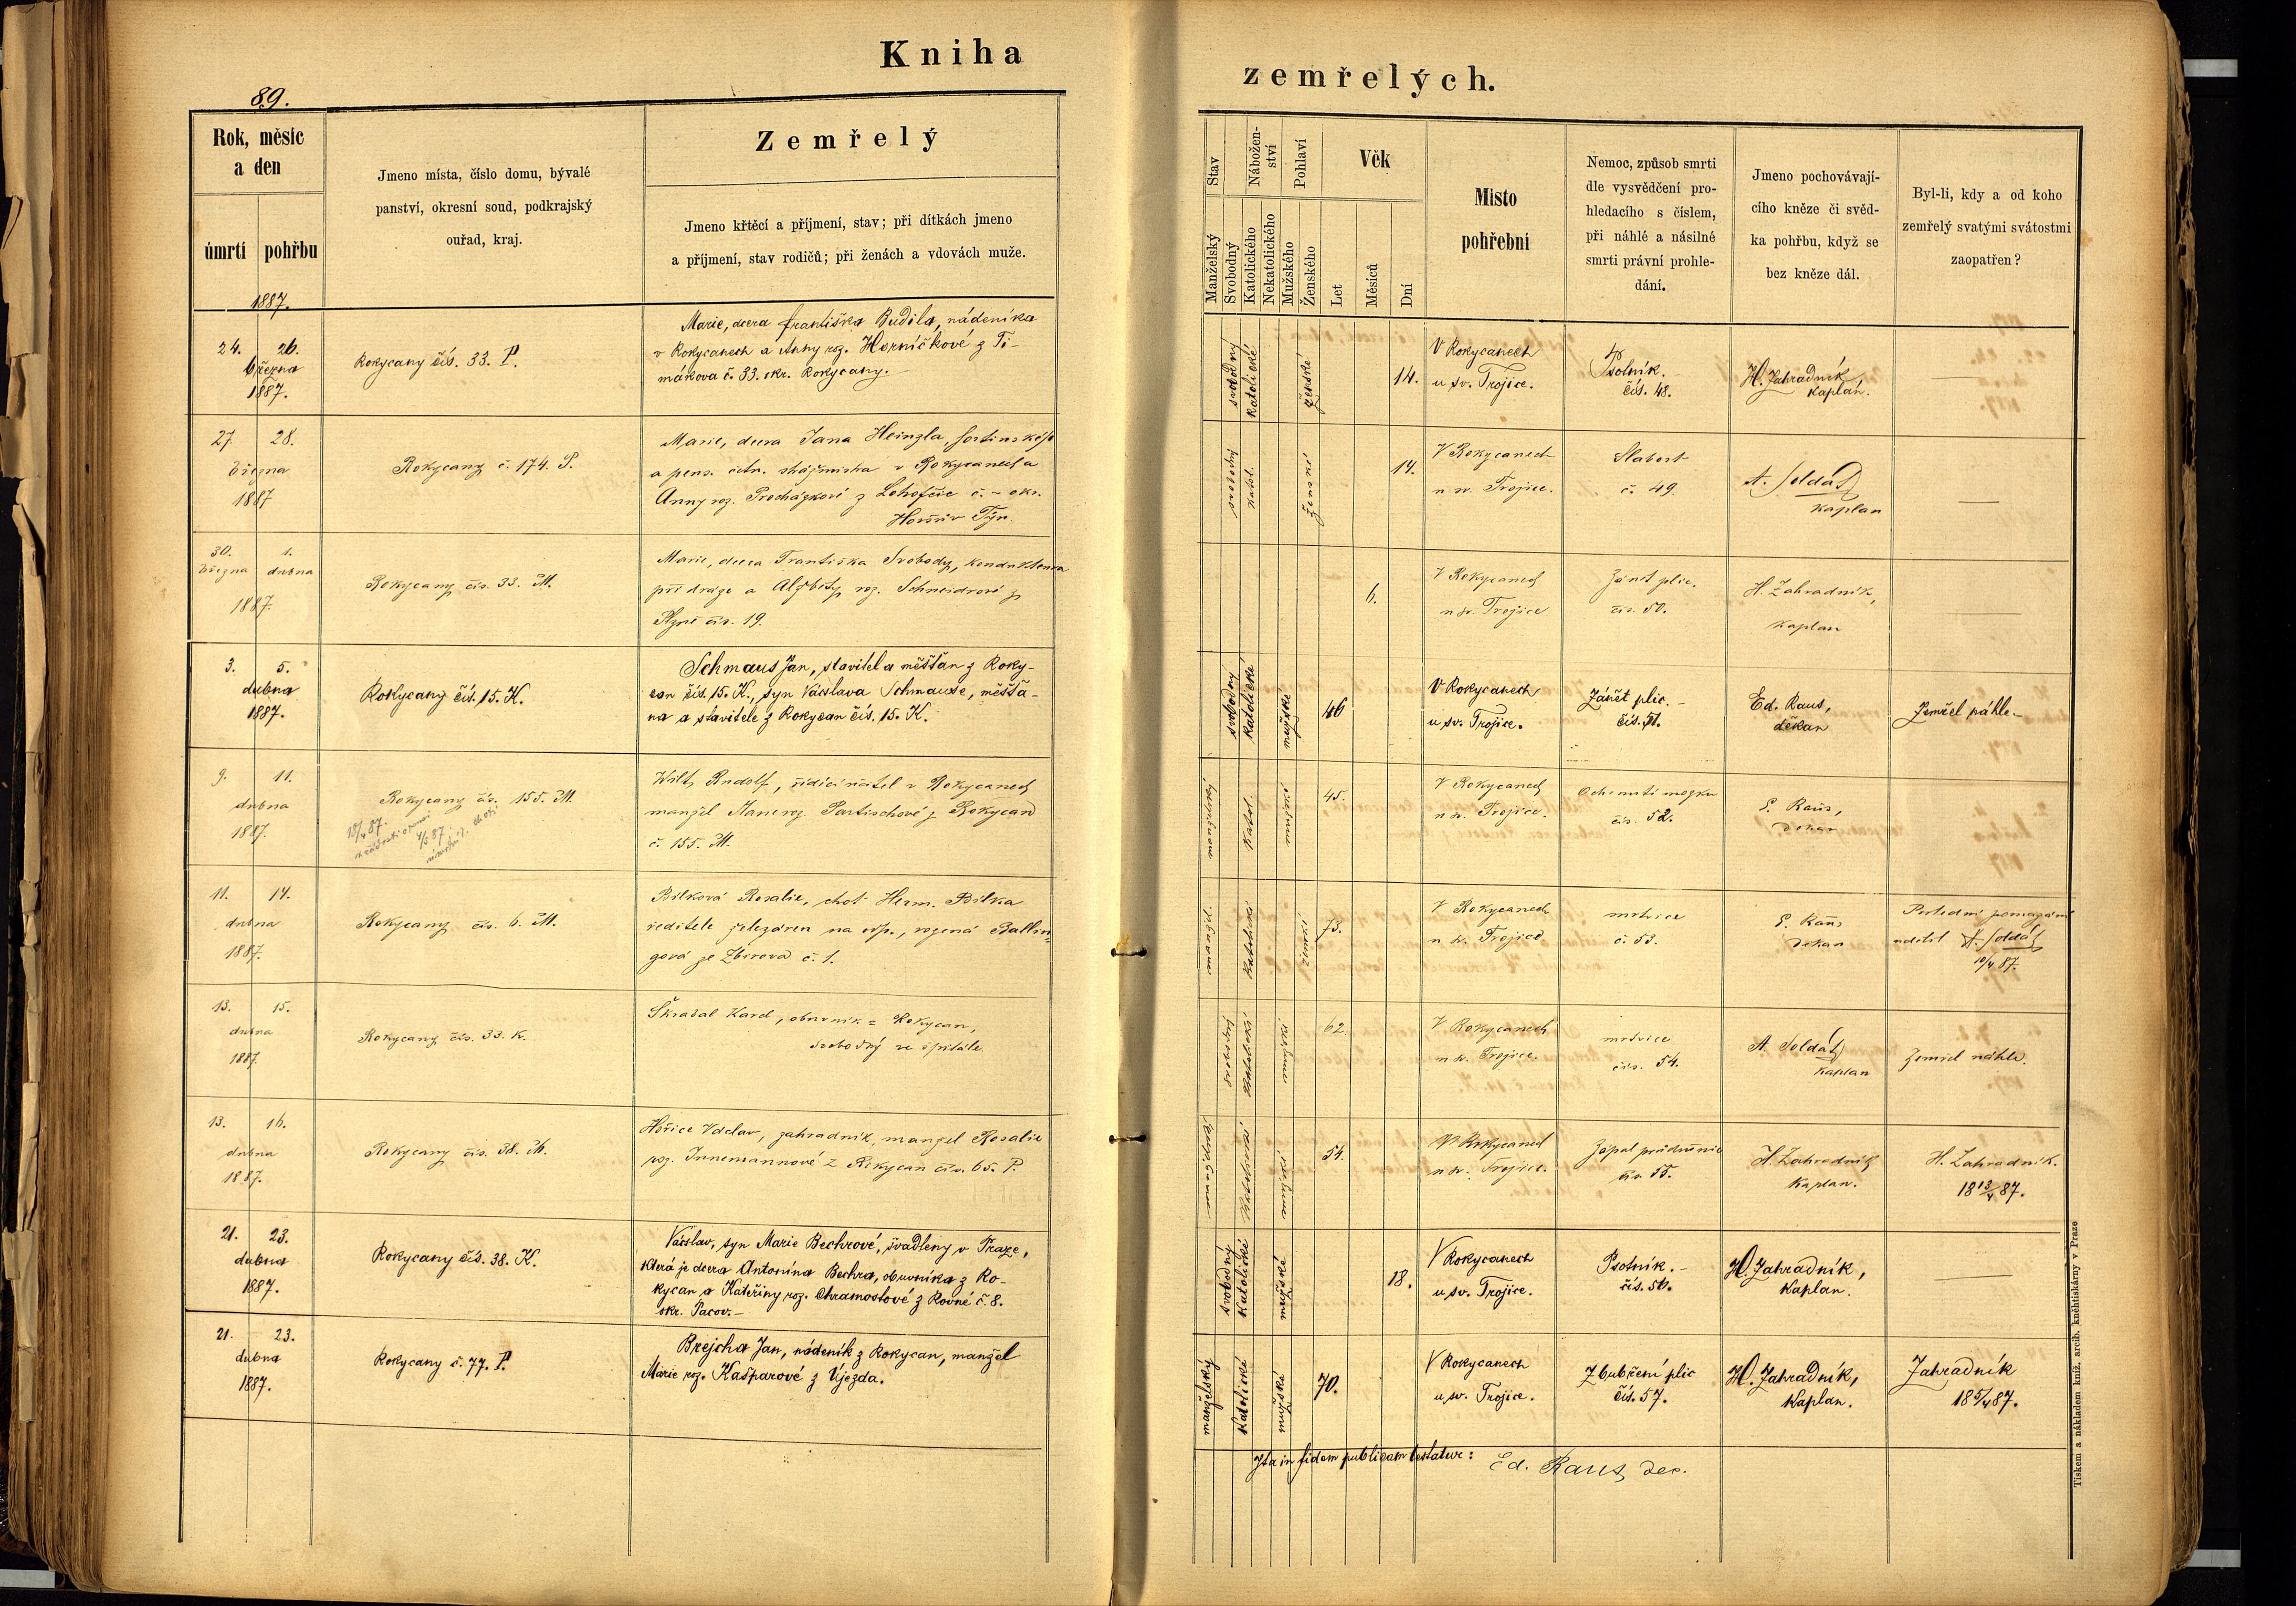 Kniha
zemřelých.
89.
Rok, měsíc
a den
úmrtí
pohřbu
Jmeno místa, číslo domu, bývalé
panství, okresní soud, podkrajský
ouřad, kraj.
Zemřelý
Jmeno křtěcí a příjmení, stav; při dítkách jmeno
a příjmení, stav rodičů; při ženách a vdovách muže.
Stav
Manželský
Svobodný
Nábožen-
ství
Katolického
Nekatolického
Pohlaví
Mužského
Ženského
Věk
Let
Měsíců
Dní
Místo
pohřební
Nemoc, způsob smrti
dle vysvědčení pro-
hledacího s číslem,
při náhlé a násilné
smrti právní prohle-
dání.
Jmeno pochovávají-
cího kněze či svěd-
ka pohřbu, když se
bez kněze dál.
Byl-li, kdy a od koho
zemřelý svatými svátostmi
zaopatřen?
1887.
24. 26.
března
1887.
Rokycany čís. 33. P.
Marie, dcera Františka Budila, nádeníka
v Rokycanech a Anny roz. Horníčkové z Ti-
mákova č. 33. okr. Rokycany.
svobodný
katolické
ženské
14.
V Rokycanech
u sv. Trojice.
Psotník.
čís. 48.
H. Zahradník
kaplán.
27. 28.
března
1887
Rokycany č. 174. P.
Marie, dcera Jana Heinzla,
a pens. v Rokycanech a
Anny roz. Procházkové z č. – okr.
Horšův Týn.
svobodný
katol.
ženské
14.
V Rokycanech
u sv. Trojice.
Slabost
č. 49.
A. Soldát
kaplan
30. 1.
března dubna
1887.
Rokycany čís. 33. M.
Marie, dcera Františka Svobody, konduktora
při dráze a Alžběty roz. Schneidrové z
Plzně čís. 19.
6.
V Rokycanech
u sv. Trojice
Zánět plic.
čís. 50.
H. Zahradník,
kaplan
3. 5.
dubna
1887.
Rokycany čís. 15. K.
Schmaus Jan, stavitel a měšťan z Roky-
can čís. 15. K., syn Václava Schmause, měšťa-
na a stavitele z Rokycan čís. 15. K.
svobodný
katolické
mužské
46
V Rokycanech
u sv. Trojice.
Zánět plic.
čís. 51.
Ed. Raus,
děkan
Zemřel náhle.
9. 11.
dubna
1887.
Rokycany čís. 155. M.
Rudolf, řídící učitel v Rokycanech
manžel roz. z Rokycan
č. 155. M.
manželský
katol.
mužské
45.
V Rokycanech
u sv. Trojice.
Ochrnutí mozku
čís. 52.
E. Raus,
děkan
11. 14.
dubna
1887.
Rokycany čís. 6. M.
Bílková Rosalie, choť Herm. Bílka
ředitele železáren na odp., rozená Ballin-
gová ze Zbirova č. 1.
manželský
katolické
ženské
73.
V Rokycanech
u sv. Trojice
mrtvice
č. 53.
E. Raus
děkan
Poslední pomazání
udělil A. Soldát
10/4 87.
13. 15.
dubna
1887.
Rokycany čís. 33. K.
Škrabal Karel, obuvník z Rokycan,
svobodný ve špitále.
svobodný
katolické
mužské
62.
V Rokycanech
u sv. Trojice.
mrtvice
čís. 54.
A. Soldát
kaplan
Zemřel náhle.
13. 16.
dubna
1887.
Rokycany čís. 38. M.
Hořice Václav, zahradník, manžel Rosalie
roz. Innemannové z Rokycan čís. 65. P.
katolické
mužské
54.
V Rokycanech
u sv. Trojice.
Zápal průdušnic
čís. 55.
H. Zahradník
kaplan.
H. Zahradník.
18 13/4 87.
21. 23.
dubna
1887.
Rokycany čís. 38. K.
Václav, syn Marie Bechrové, švadleny v Praze,
která je dcera Antonína Bechra, obuvníka z Ro-
kycan a Kateřiny roz. Chramostové z Rovné č. 8.
okr. Pacov.
svobodný
katolické
mužské
18.
V Rokycanech
u sv. Trojice.
Psotník.
čís. 56.
H. Zahradník,
kaplan.
21. 23.
dubna
1887.
Rokycany č. 77. P.
Brejcha Jan, nádeník z Rokycan, manžel
Marie roz. Kašparové z Újezda.
manželský
katolické
mužské
70.
V Rokycanech
u sv. Trojice.
Zbubření plic
čís. 57.
H. Zahradník,
kaplan.
Zahradník
18 5/4 87.
Ita in fidem publicam testatur:
Ed. Raus, dec.
Tiskem a nákladem kníž. arcib. knihtiskárny v Praze